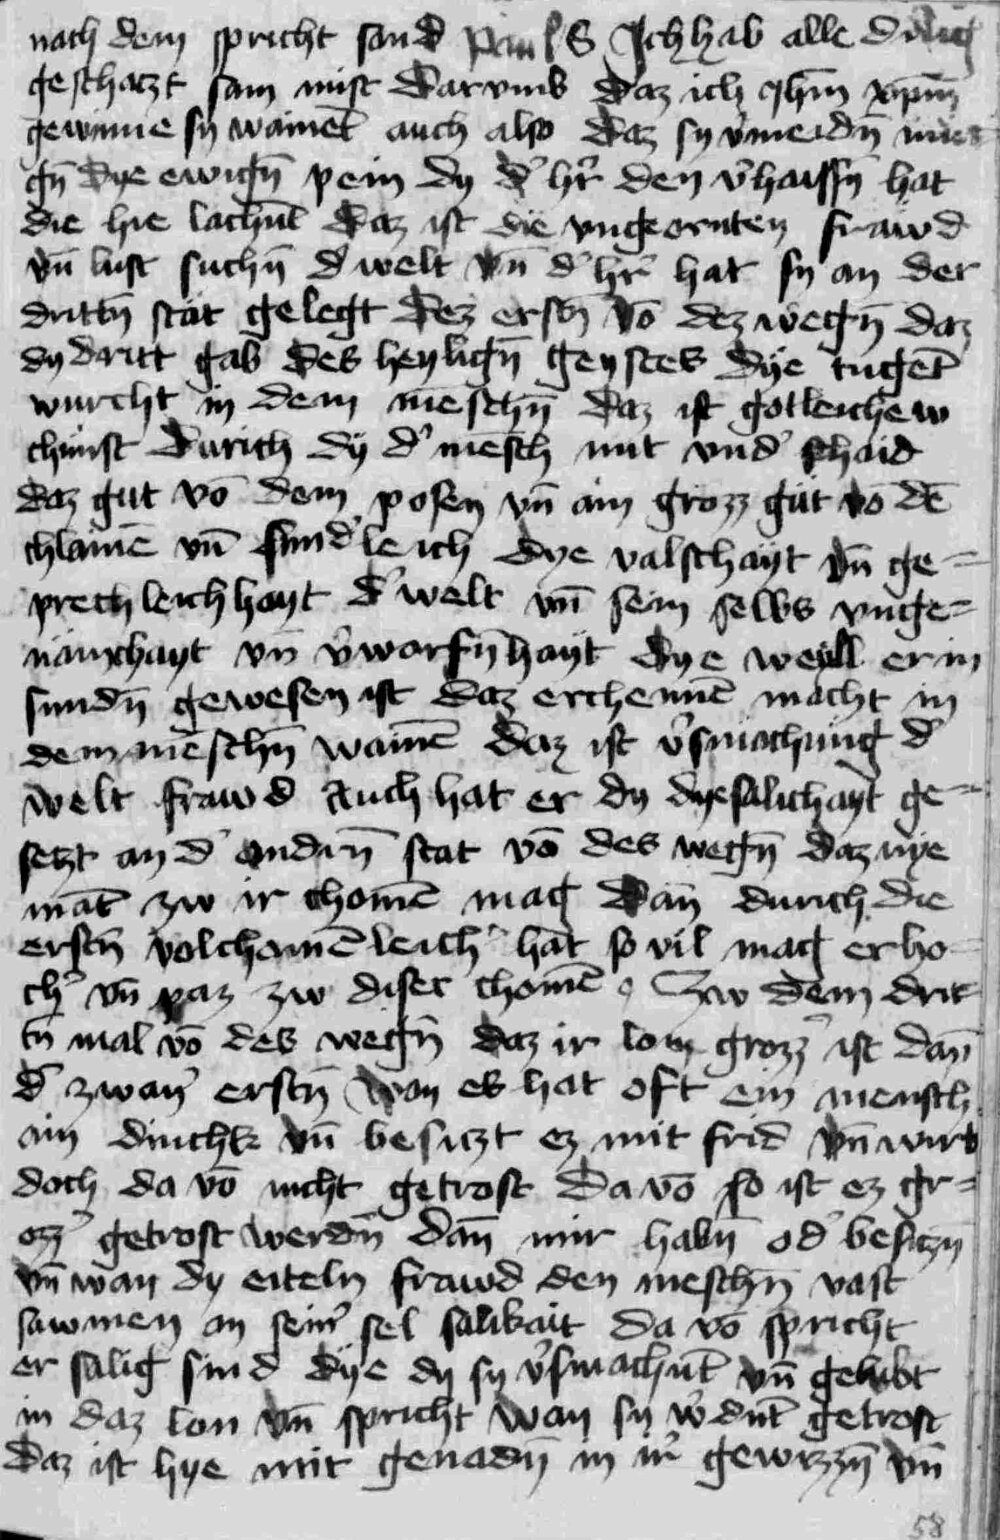 nach dem spricht sand pauls Ich hab alle ding
geschatzt sam mist darvmb daz ich ihm xpm̄
gewinne sy wainēt auch also daz sy v̓meidn̄ mu
gn̄ dye ewign̄ pein dy d̓ hr̄ den v̓haissn̄ hat
die hie lachnt̄ daz ist die vngeornten frawd
vn̄ lust suchn̄ d̓ welt vn̄ d̓ hr̄ hat sy an der
drittn̄ stat gelegt dez erstn̄ vō dez wegn̄ daz
dy dritt gab des heylign̄ geystes dye tugēt
wurcht in dem mēschn̄ daz ist gotleichew
chunst durich dy d̓ mēsch mit vnd̓schaid
daz gut vō dem posen vn̄ ain grozz gut vō dē
chlainē vn̄ sund̓leich dye valschayt vn̄ ge=
prechleichhayt d̓ welt vn̄ sein selbs vnge=
namchayt vn̄ v̓worfn̄hayt dye weyll er in
sundn̄ gewesen ist daz erchennē macht in
dem mēschn̄ wainē daz ist v̓smachung d̓
welt frawd Auch hat er dy dye salichayt ge=
setzt an d̓ andern̄ stat vō des wegn̄ daz nye
māt zw ir chomē mag dan̄ durich die
erstn̄ volchomēleich̓ hat so vil mag er ho=
ch̓ vn̄ paz zw diser chomē Zw dem drit
tn̄ mal vō des wegn̄ daz ir lon grozz̓ ist dan̄
d̓ zwair̓ erstn̄ wan es hat oft ein mensch
ain dinchk vn̄ besitzt ez mit frid vn̄ wirt
doch da vō nicht getrost da vō so ist ez gr=
ozz̓ getrost werdn̄ dan̄ nur habn̄ od̓ besitzn̄
vn̄ wan dy eiteln frawd den meschn̄ vast
sawmen an sein̓ sel salikait da vō spricht
er salig sind dye dy sy v̓smachnt̄ vn̄ gelubt
in daz lon vn̄ spricht wan sy w̓dnt̄ getrost
daz ist hye mit genadn̄ in ir̓ gewizzn̄ vn̄
58